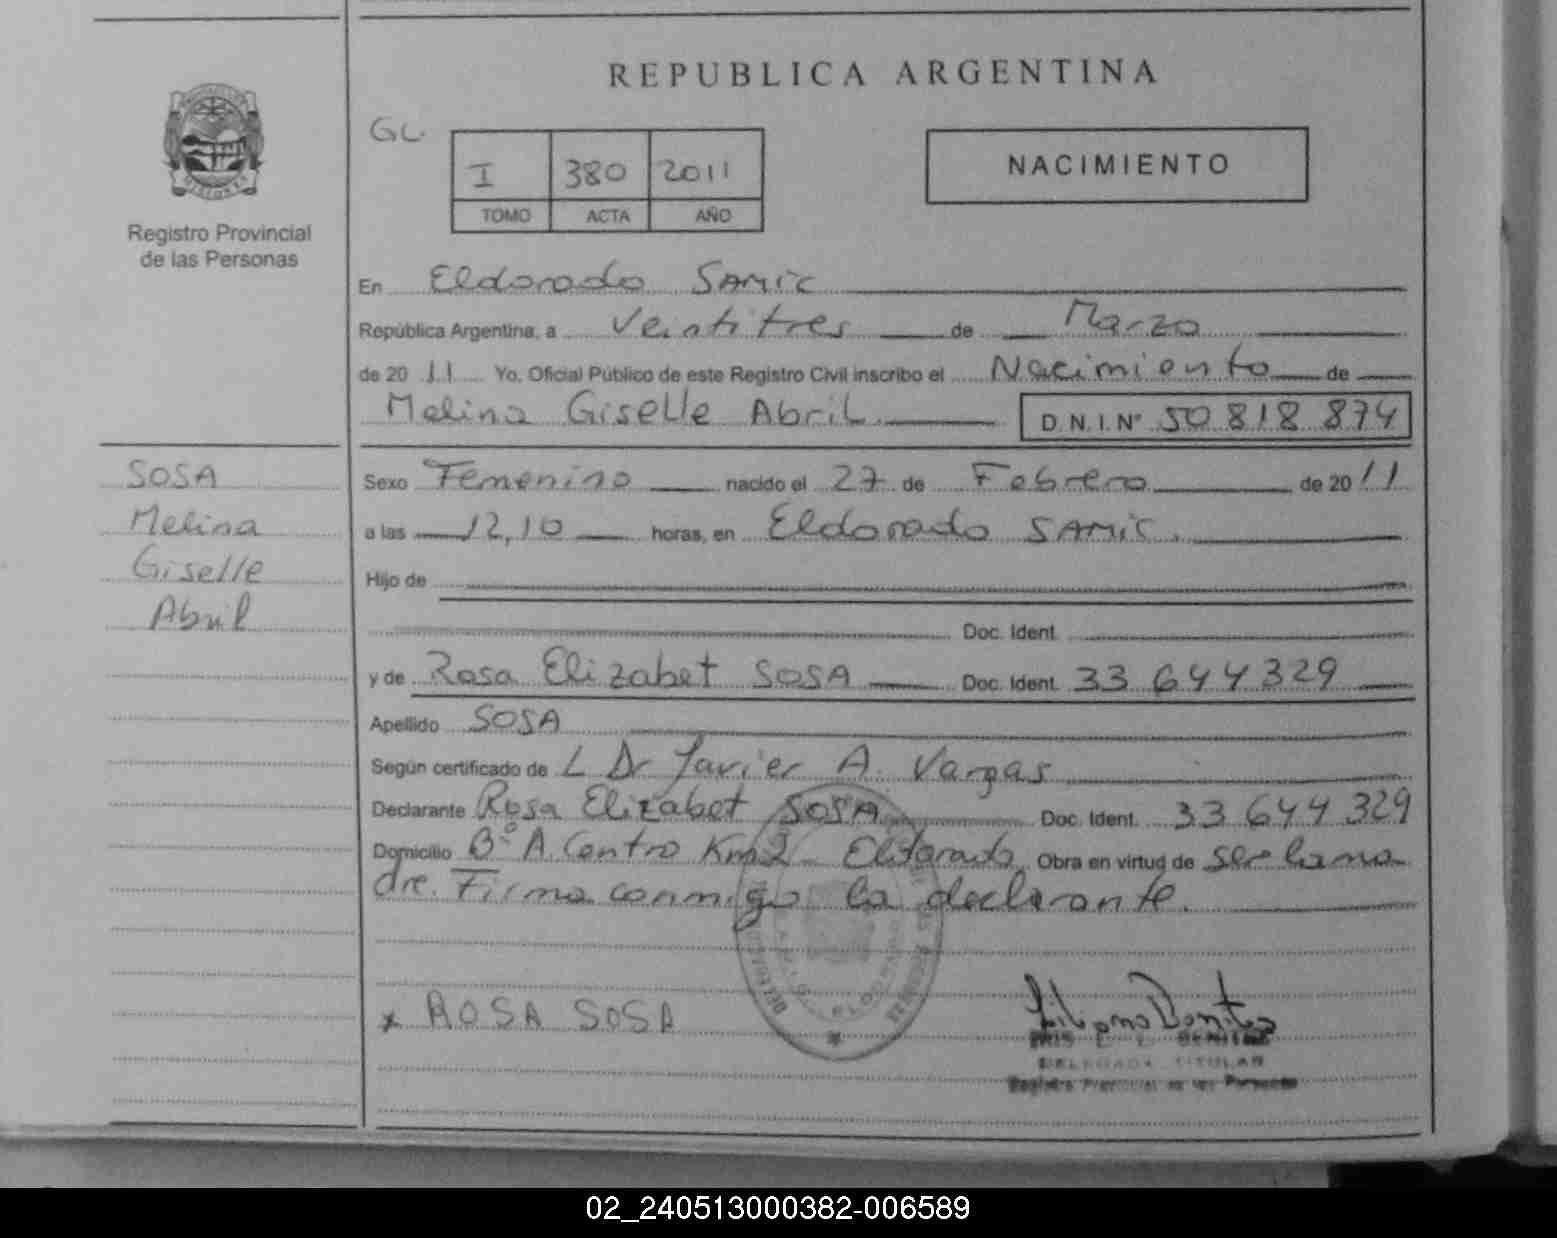 REPUBLICA ARGENTINA
GL.
I 380 2011
TOMO ACTA AÑO
NACIMIENTO
Registro Provincial
de las Personas
En Eldorado SAMIC
República Argentina, a Veintitres de Marzo
de 20 11 Yo, Oficial Público de este Registro Civil inscribo el Nacimiento de
Melina Giselle Abril D.N.I. Nº 50 818 874
SOSA
Melina
Giselle
Abril
Sexo Femenino nacido el 27 de Febrero de 20 11
a las 12,10 horas, en Eldorado SAMIC.
Hijo de
Doc. Ident.
y de Rosa Elizabet SOSA Doc. Ident. 33 644 329
Apellido SOSA
Según certificado de L Dr Javier A. Vargas
Declarante Rosa Elizabet SOSA Doc. Ident. 33 644 329
Domicilio Bº A. Centro Km2 Eldorado Obra en virtud de ser la ma
dre. Firma conmigo la declarante.
x ROSA SOSA
Benitez
DELEGADA TITULAR
Registro Provincial de las Personas
02_240513000382-006589